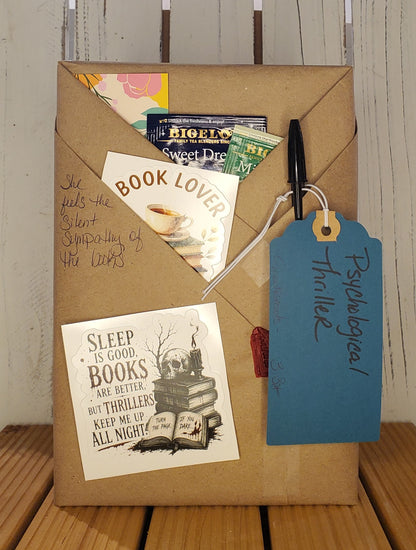 BIGELOW
FAMILY TEA BLENDERS SINCE
Sweet Dre
BIGELOW
BOOK LOVER
She
feels the
silent
sympathy of
the
Psychological
Thriller
SLEEP
IS GOOD,
BOOKS
ARE BETTER,
BUT THRILLERS
KEEP ME UP
ALL NIGHT!
TURN
THE PAGE
IF YOU
DARE